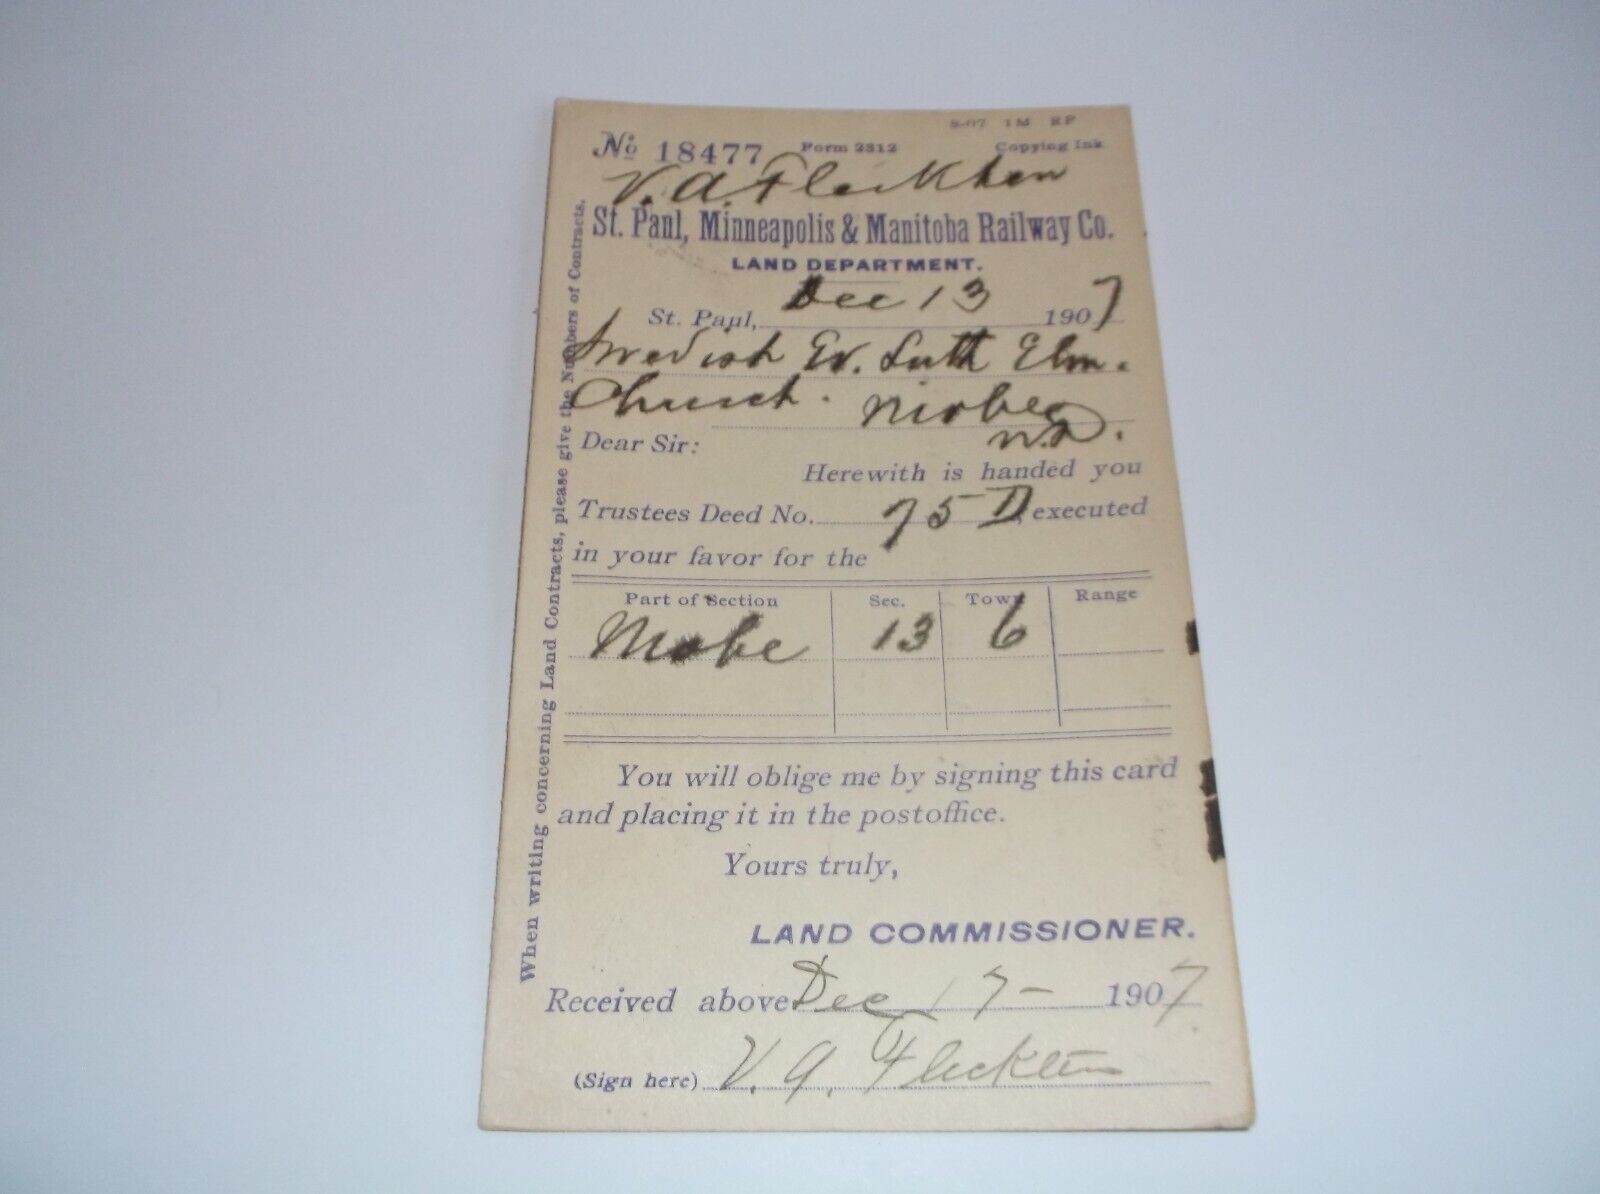 8-07 1M RP
No 18477 Form 2312 Copying Ink
V. A. Fleckten
St. Paul, Minneapolis & Manitoba Railway Co.
LAND DEPARTMENT.
St. Paul, Dec 13 1907
Swedish Ev. Luth Elm.
Church. Mohe
N.D.
Dear Sir:
Herewith is handed you
Trustees Deed No. 75 D executed
in your favor for the
Part of Section Sec. Town Range
Mohe 13 6
You will oblige me by signing this card
and placing it in the postoffice.
Yours truly,
LAND COMMISSIONER.
Received above Dec 17- 1907
(Sign here) V. A. Fleckten
When writing concerning Land Contracts, please give the Numbers of Contracts.